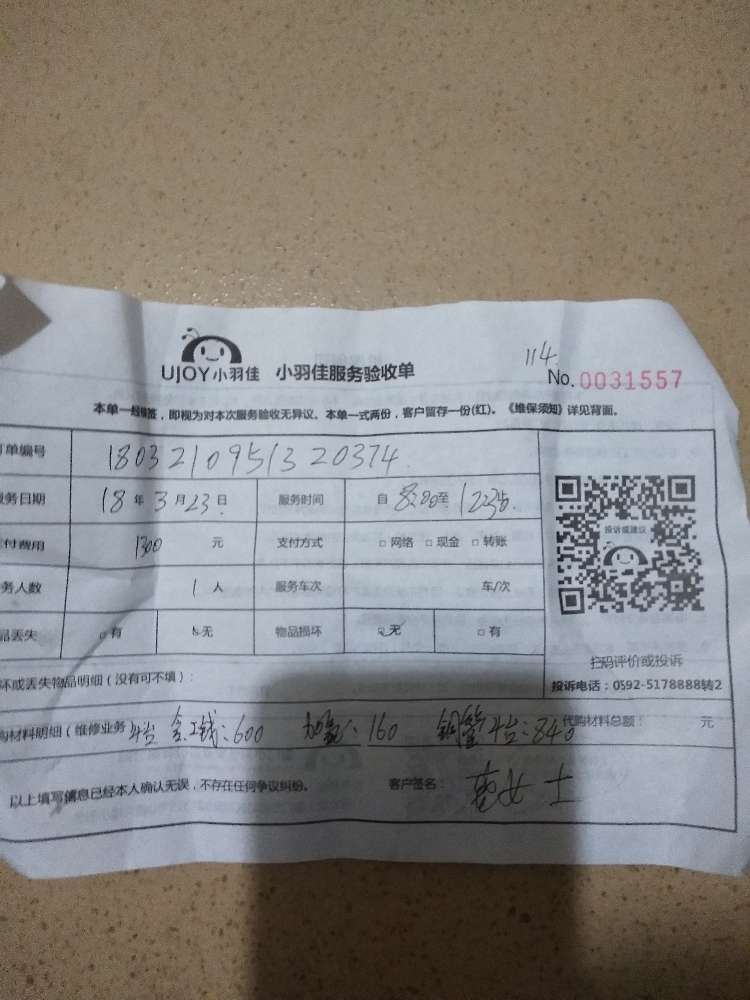 114
UJOY小羽佳 小羽佳服务验收单 No.0031557
本单一经签，即视为对本次服务验收无异议。本单一式两份，客户留存一份(红)。《维保须知》详见背面。
单编号 1803210951320374
务日期 18年3月23日 服务时间 自8:00至
付费用 1300元 支付方式 □网络 □现金 □转账
务人数 1人 服务车次 车/次
品丢失 □有 □无 物品损坏 □无 □有
投诉或建议
扫码评价或投诉
投诉电话：0592-5178888转2
坏或丢失物品明细（没有可不填）：
购材料明细（维修业务 工钱：600 加氨：160 铜管 840 代购材料总额： 元
以上填写信息已经本人确认无误，不存在任何争议纠纷。 客户签名： 女士